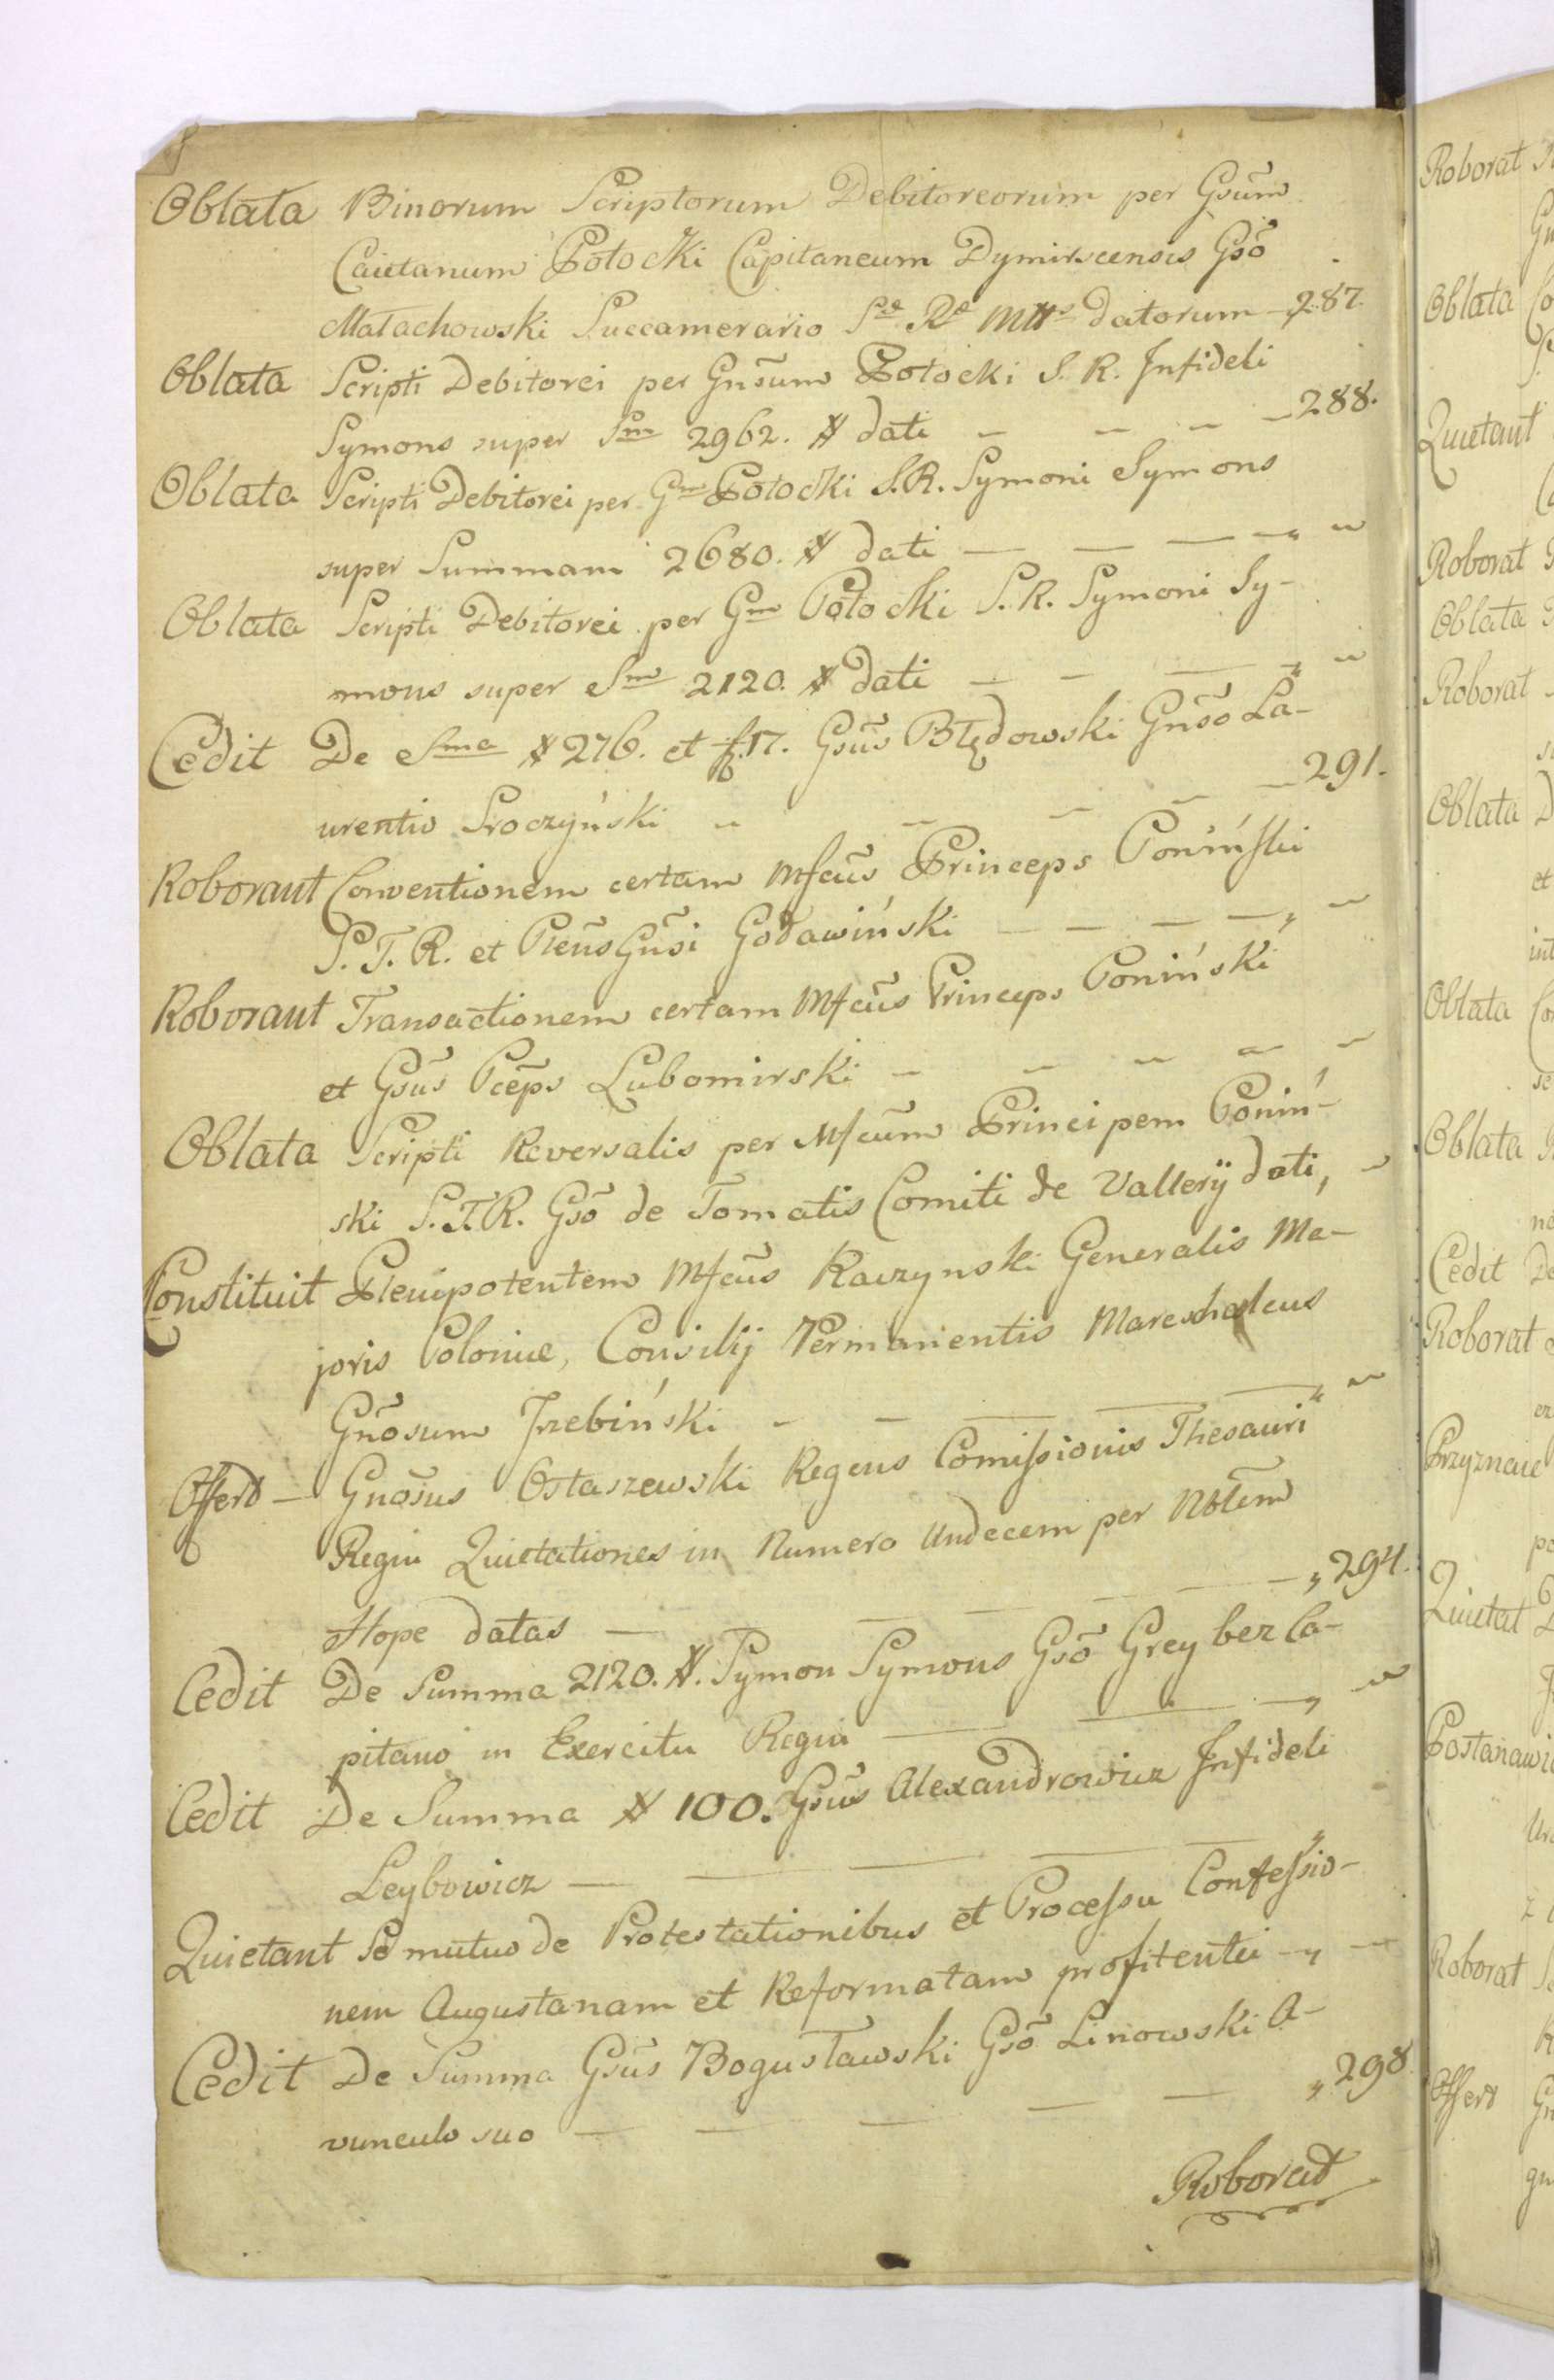 Oblata Binorum Scriptorum Debitoreorum per Gsūm
Caietanum Potocki Capitaneum Dymirscensis Gsō
Małachowski Succamerario Sae Rae Mttis datorum - 287.
Oblata Scripti Debitorei per Gnsūm Potocki S. R. Infideli
Symons super Sm 2962. # dati - - - - 288.
Oblata Scripti Debitorei per Gm Potocki S.R. Symoni Symons
super Summam 2680. # dati — — — — „ "
Oblata Scripti Debitorei per Gm Potocki S.R. Symoni Sy-
mons super Sm 2120. # dati — - — „ "
Cedit De Sma # 276. et f. 17. Gsūs Błędowski Gnsō La-
urentio Sroczyński " - - - - 291.
Roborant Conventionem certam Mfcūs Princeps Poniński
S. T. R. et Plēns Gnsi Godawiński — — — — „ "
Roborant Transactionem certam Mfcūs Princeps Poniński
et Gsūs Pcēps Lubomirski - - - - -
Oblata Scripti Reversalis per Mfcūm Principem Poniń-
ski S.T.R. Gsō de Tomatis Comiti de Vallerÿ dati, "
Constituit Plenipotentem Mfcūs Raczynski Generalis Ma-
joris Poloniae, Consilij Permanentis Mareschalcus
Gnōsum Trzebiński - - — — — „ "
Offert — Gnōsus Ostaszewski Regens Comissionis Thesauri
Regni Quietationes in Numero Undecem per Nblēm
Hope datas — — — — — „ 294.
Cedit De Summa 2120. #. Symon Symons Gsō Grey ber Ca-
pitano in Exercitu Regni — — — „ "
Cedit De Summa # 100. Gsūs Alexandrowicz Infideli
Leybowicz — — — — — „
Quietant Se mutuo de Protestationibus et Processu Confessio-
nem Augustanam et Reformatam profitentei - „ —
Cedit De Summa Gsūs Bogusławski Gsō Linowski A-
vunculo suo — — — — — „ 298.
Roborat
Roborat
Oblata
Quietant
Roborat
Oblata
Roborat
Oblata
et
Oblata
Oblata
Cedit De
Roborat
Przyznaie
Quietat
Postanawia
Roborat
Offert